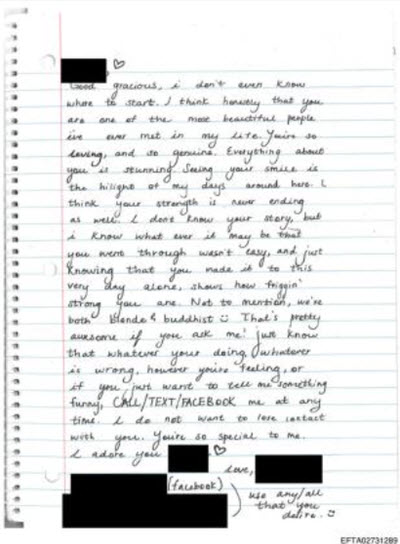 Good gracious, i don't even know
where to start. I think honestly that you
are one of the most beautiful people
i've ever met in my life. You're so
loving, and so genuine. Everything about
you is stunning. Seeing your smile is
the hilight of my days around here. I
think your strength is never ending
as well. I don't know your story, but
i know what ever it may be that
you went through wasn't easy, and just
knowing that you made it to this
very day alone, shows how friggin'
strong you are. Not to mention, we're
both blonde & buddhist That's pretty
awesome if you ask me! just know
that whatever your doing, whatever
is wrong, however you're feeling, or
if you just want to tell me something
funny, CALL/TEXT/FACEBOOK me at any
time. I do not want to lose contact
with you. You're so special to me.
I adore you
love,
(facebook)
use any/all
that you
desire.
EFTA02731289